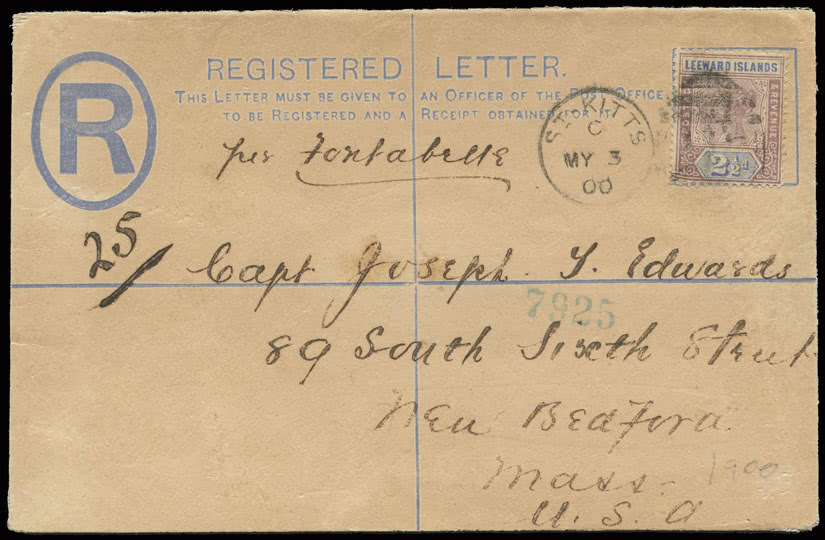 R
REGISTERED LETTER.
THIS LETTER MUST BE GIVEN TO AN OFFICER OF THE POST OFFICE
TO BE REGISTERED AND A RECEIPT OBTAINED FOR IT.
LEEWARD ISLANDS
REVENUE
2½d
ST. KITTS
C
MY 3
00
per Fontabelle
25/
Capt Joseph. T. Edwards
7925
89 South Sixth Street
New Bedford
Mass.
1900
U. S. A